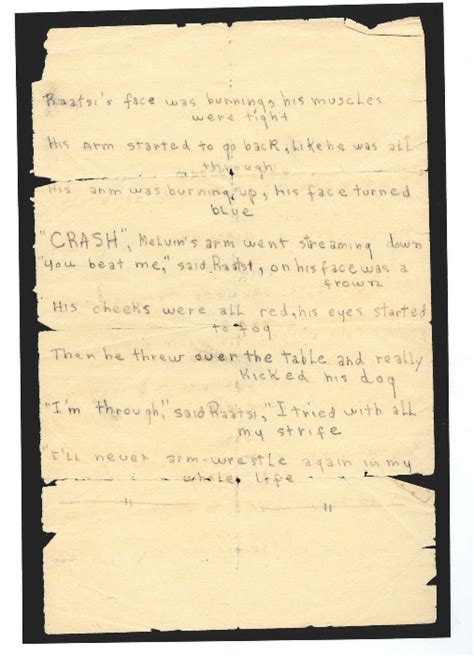 Raatsi's face was burning, his muscles
were tight
His arm started to go back, like he was all
through
His arm was burning up, his face turned
blue
"CRASH", Melvin's arm went streaming down
"you beat me," said Raatsi, on his face was a
frown
His cheeks were all red, his eyes started
to fog
Then he threw over the table and really
kicked his dog
"I'm through," said Raatsi, "I tried with all
my strife
"I'll never arm-wrestle again in my
whole life
" "